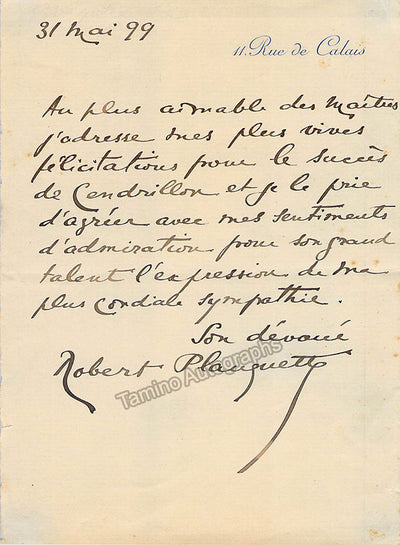 31 Mai 99
11. Rue de Calais
Au plus aimable des Maîtres
j'adresse mes plus vives
félicitations pour le succès
de Cendrillon et je le prie
d'agréer avec mes sentiments
d'admiration pour son grand
talent l'expression de ma
plus cordiale sympathie.
Son dévoué
Robert Planquette
Tamino Autographs